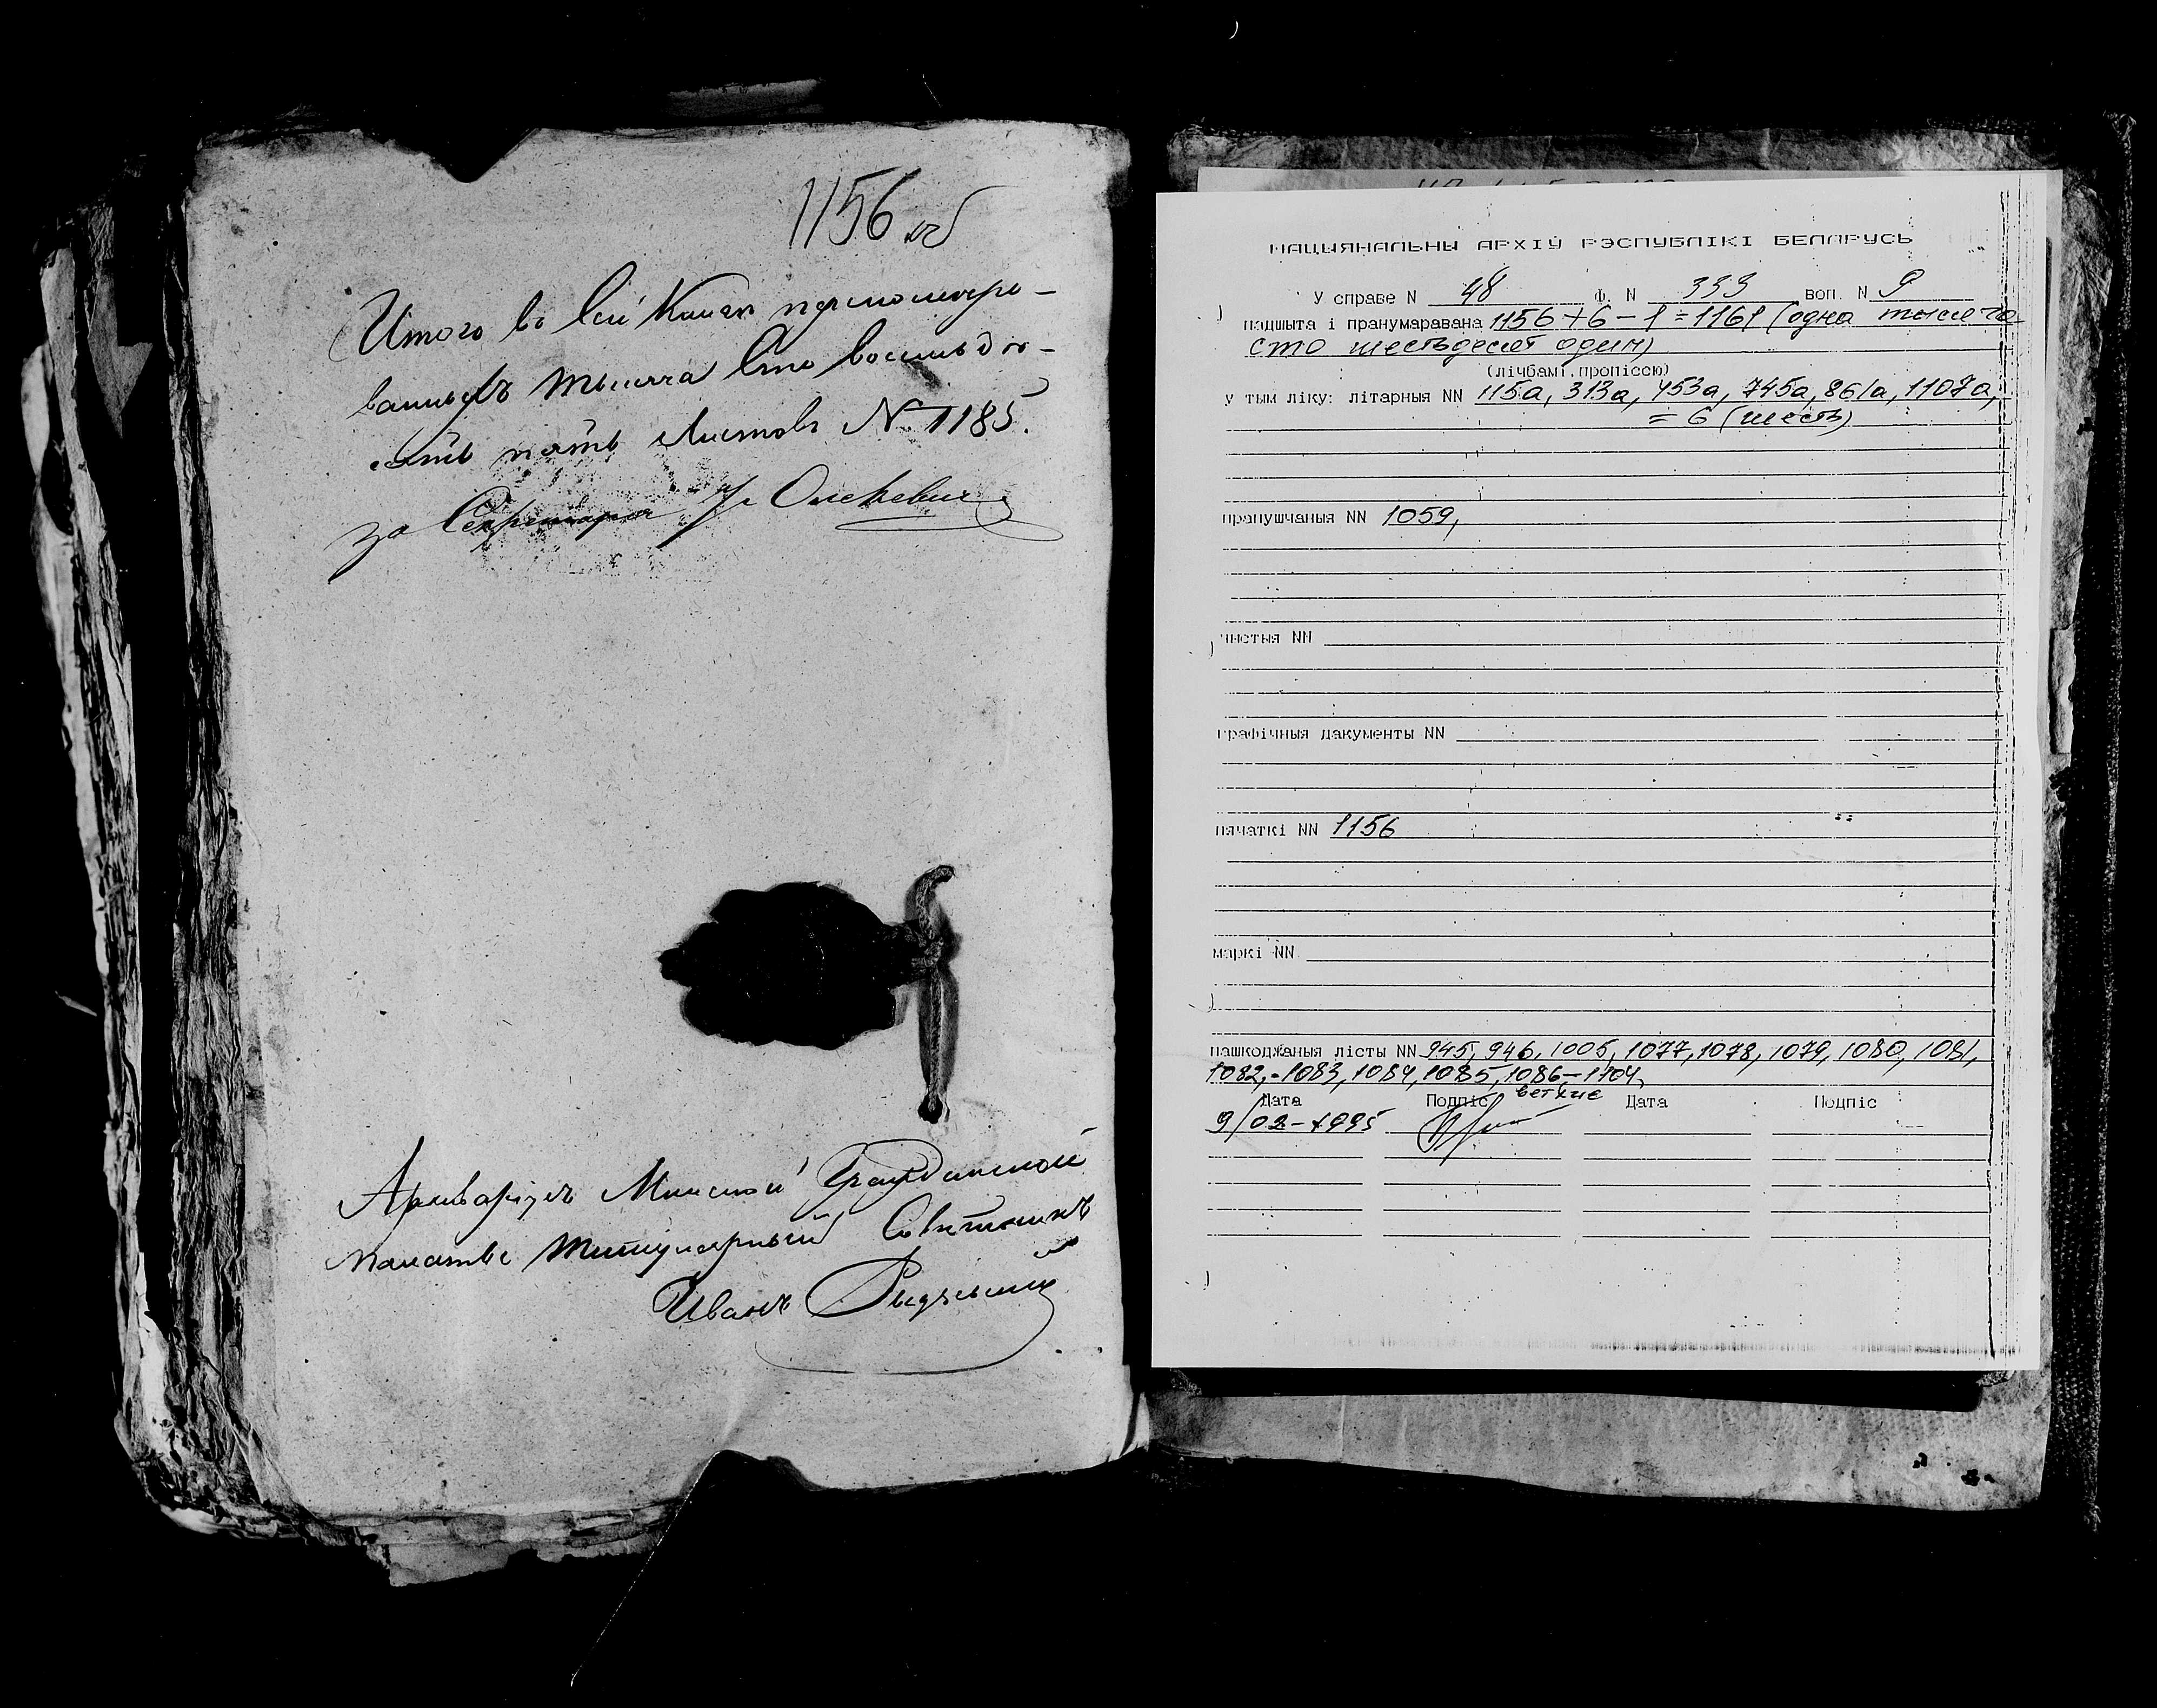 1156 об
Итого в сей Книге перенумеро-
ванныхъ тысяча сто восемьде-
сятъ пять листовъ N. 1185.
за Секретаря
Архиваріусъ Минской Гражданской
палаты Титулярный Совѣтникъ
Иванъ
НАЦЫЯНАЛЬНЫ АРХІЎ РЭСПУБЛІКІ БЕЛАРУСЬ
У справе N 48 Ф. N 333 воп. N 9
падшыта і пранумаравана 1156 + 6 - 1 = 1161 (одна тысяча
сто шестьдесят один)
(лічбамі, пропіссю)
у тым ліку: літарныя NN 115а, 313а, 453а, 745а, 861а, 1107а,
= 6 (шесть)
прапушчаныя NN 1059,
чыстыя NN
графічныя дакументы NN
пячаткі NN 1156
маркі NN
пашкоджаныя лісты NN 945, 946, 1005, 1077, 1078, 1079, 1080, 1081,
1082, 1083, 1084, 1085, 1086-1104,
ветхие
Дата Подпіс Дата Подпіс
9/02-1995